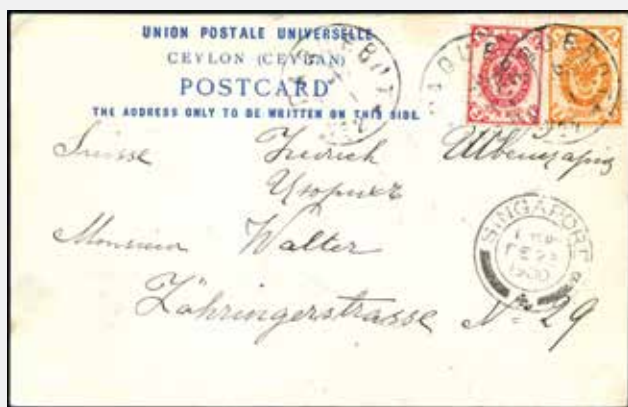 UNION POSTALE UNIVERSELLE
CEYLON (CEYLAN)
POSTCARD
THE ADDRESS ONLY TO BE WRITTEN ON THIS SIDE.
PAQUEBOT
Suisse Zurich Швейцария
Цюрих
Monsieur Walter
Zähringerstrasse № 29
SINGAPORE
FE 23
1900